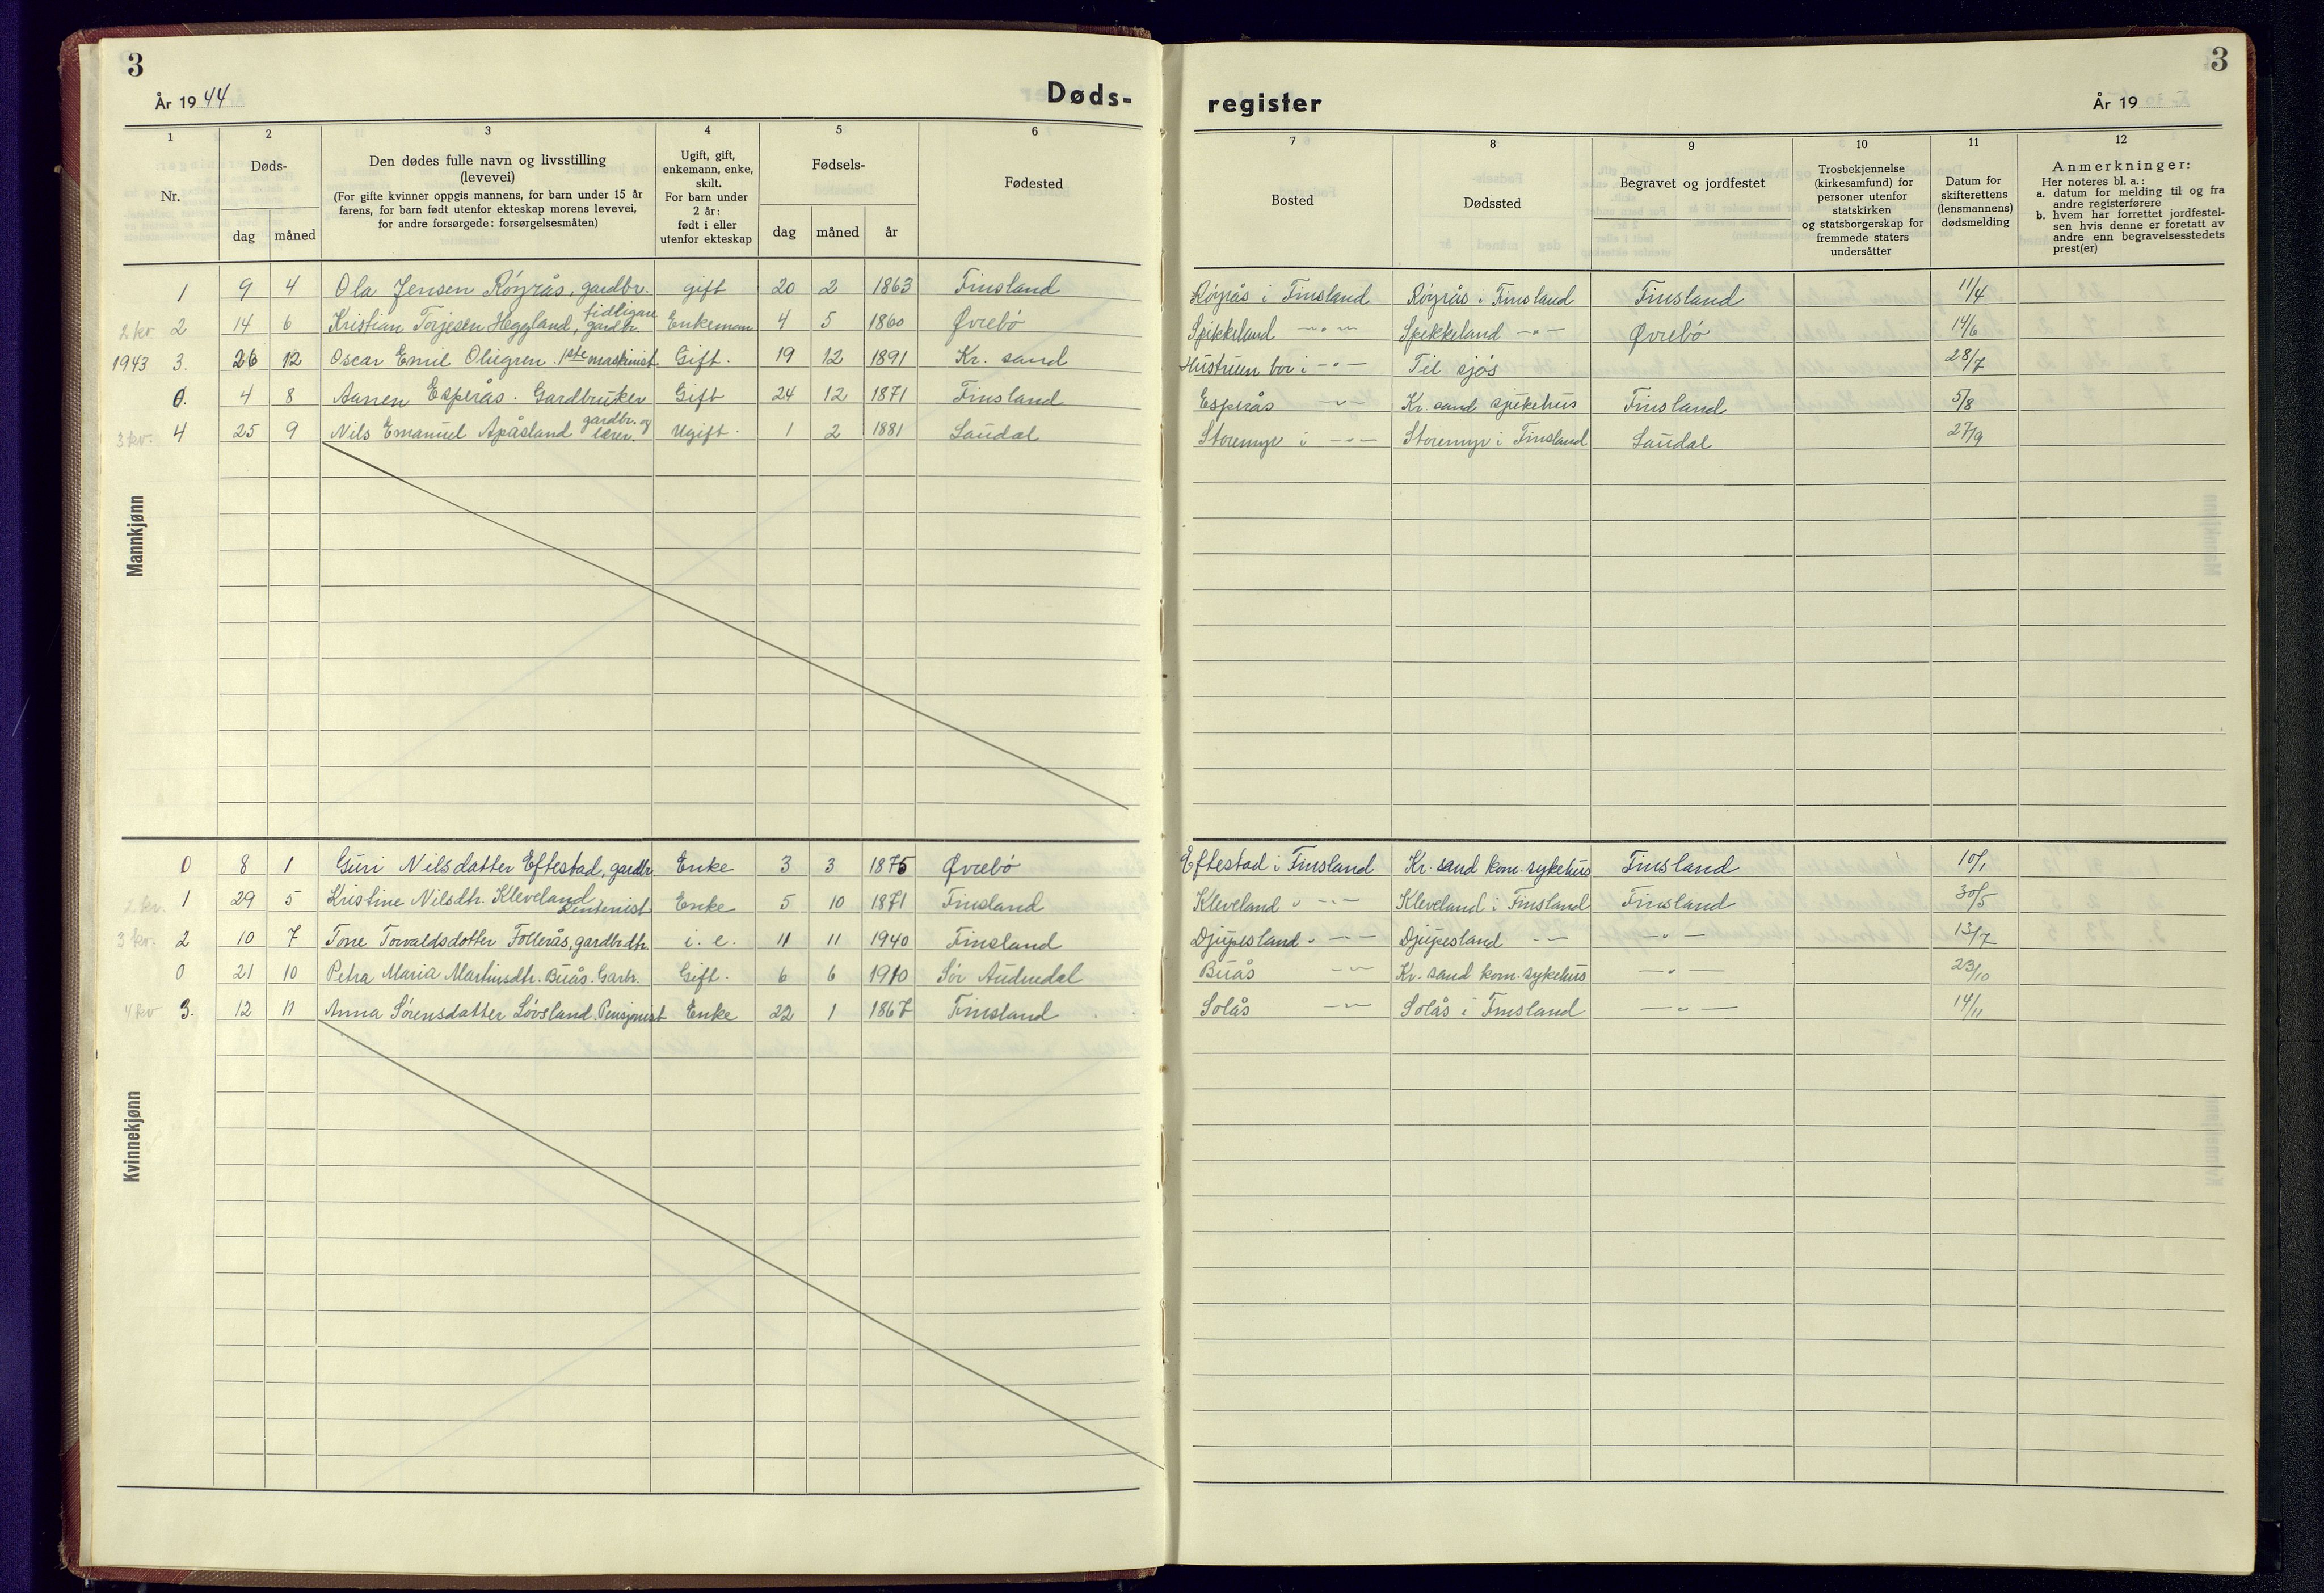 3
År 1944
Døds-
register
År 19
3
1
2
3
4
5
6
7
8
9
10
11
12
Nr.
Døds-
dag
måned
Den dødes fulle navn og livsstilling
(levevei)
(For gifte kvinner oppgis mannens, for barn under 15 år
farens, for barn født utenfor ekteskap morens levevei,
for andre forsørgede: forsørgelsesmåten)
Ugift, gift,
enkemann, enke,
skilt.
For barn under
2 år:
født i eller
utenfor ekteskap
Fødsels-
dag
måned
år
Fødested
Bosted
Dødssted
Begravet og jordfestet
Trosbekjennelse
(kirkesamfund) for
personer utenfor
statskirken
og statsborgerskap for
fremmede staters
undersåtter
Datum for
skifterettens
(lensmannens)
dødsmelding
Anmerkninger:
Her noteres bl. a.:
a. datum for melding til og fra
andre registerførere
b. hvem har forrettet jordfestel-
sen hvis denne er foretatt av
andre enn begravelsesstedets
prest(er)
Mannkjønn
1 9 4 Ola Jensen Røyrås, gardbr. gift 20 2 1863 Finsland Røyrås i Finsland Røyrås i Finsland Finsland 11/4
2 kv 2 14 6 Kristian Torjesen Heggland, tidligare gardbr. Enkemann 4 5 1860 Øvrebö Spikkeland —"— Spikkeland —"— Øvrebö 14/6
1943 3. 26 12 Oscar Emil Oliegren. 1ste maskinist. Gift. 19 12 1891 Kr. sand Hustruen bor i —"— Til sjøs 28/7
0. 4 8 Aanen Esperås. Gardbruker Gift 24 12 1871 Finsland Esperås —"— Kr. sand sjukehus Finsland 5/8
3 kv. 4 25 9 Nils Emanuel Apåsland gardbr. og lærer. Ugift. 1 2 1881 Laudal Storemyr i —"— Storemyr i Finsland Laudal 27/9
Kvinnekjønn
0 8 1 Guri Nilsdatter Eftestad, gardbr. Enke 3 3 1875 Øvrebö Eftestad i Finsland Kr. sand kom. sykehus Finsland 10/1
2 kv. 1 29 5 Kristine Nilsdtr. Kleveland, Rentenist Enke 5 10 1871 Finsland Kleveland " —"— Kleveland i Finsland Finsland 30/5
3 kv. 2 10 7 Tone Torvaldsdotter Follerås, gardbr.dtr. i. e. 11 11 1940 Finsland Djupesland " —"— Djupesland —"— —"— 13/7
0 21 10 Petra Maria Martinsdtr. Buås. Garbr. Gift. 6 6 1910 Sör Audnedal Buås —"— Kr. sand kom. sykehus —"— 23/10
4 kv 3. 12 11 Anna Sørensdatter Løvsland. Pensjonist Enke 22 1 1867 Finsland Solås —"— Solås i Finsland —"— 14/11